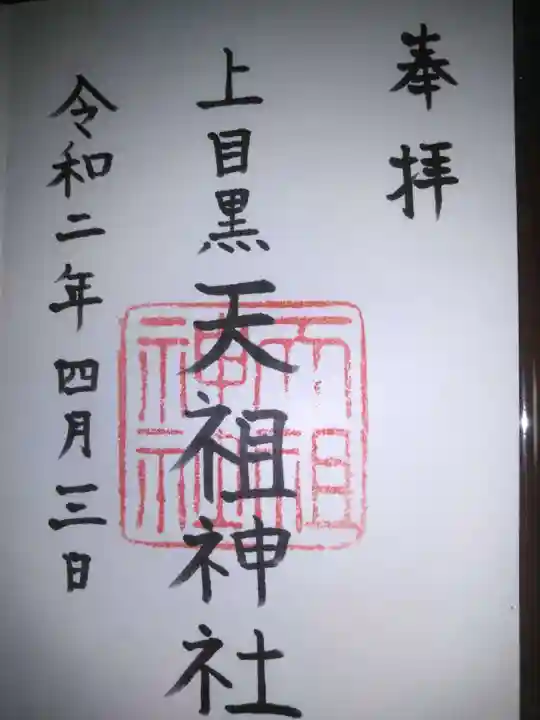 奉拝
上目黒天祖神社
天祖神社
令和二年四月三日